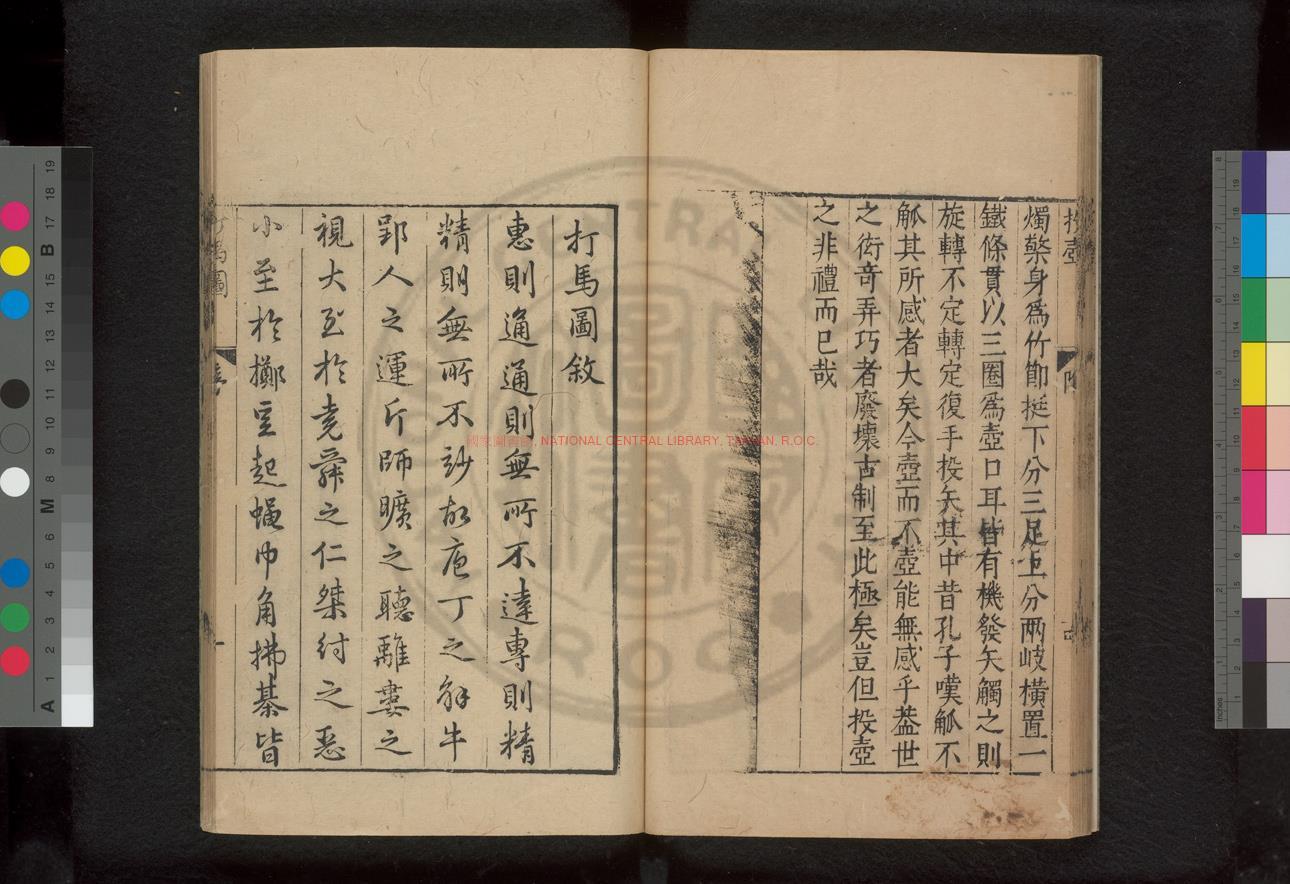 投壺
燭檠身爲竹節挺下分三足上分兩岐橫置一
鐵條貫以三圈爲壺口耳皆有機發矢觸之則
旋轉不定轉定復手投矢其中昔孔子嘆觚不
觚其所感者大矣今壺而不壺能無感乎葢世
之衒竒弄巧者廢壞古制至此極矣豈但投壺
之非禮而已哉
打馬圖敘
惠則通通則無所不達專則精
精則無所不妙故庖丁之解牛
郢人之運斤師曠之聽離婁之
視大至於堯舜之仁桀紂之惡
小至於擲豆起蠅巾角拂棊皆
國家圖書館, NATIONAL CENTRAL LIBRARY, TAIWAN, R.O.C.